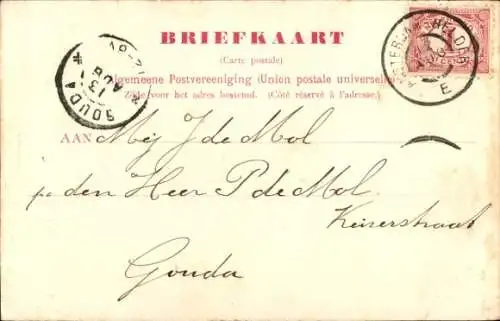 BRIEFKAART
(Carte postale)
Algemeene Postvereeniging (Union postale universelle)
Zijde voor het adres bestemd. (Côté réservé à l'adresse.)
AMSTERDAM-HELDER
E
GOUDA
13
AUG
AAN Mej J de Mol
p/a den Heer P de Mol
Keizerstraat
Gouda